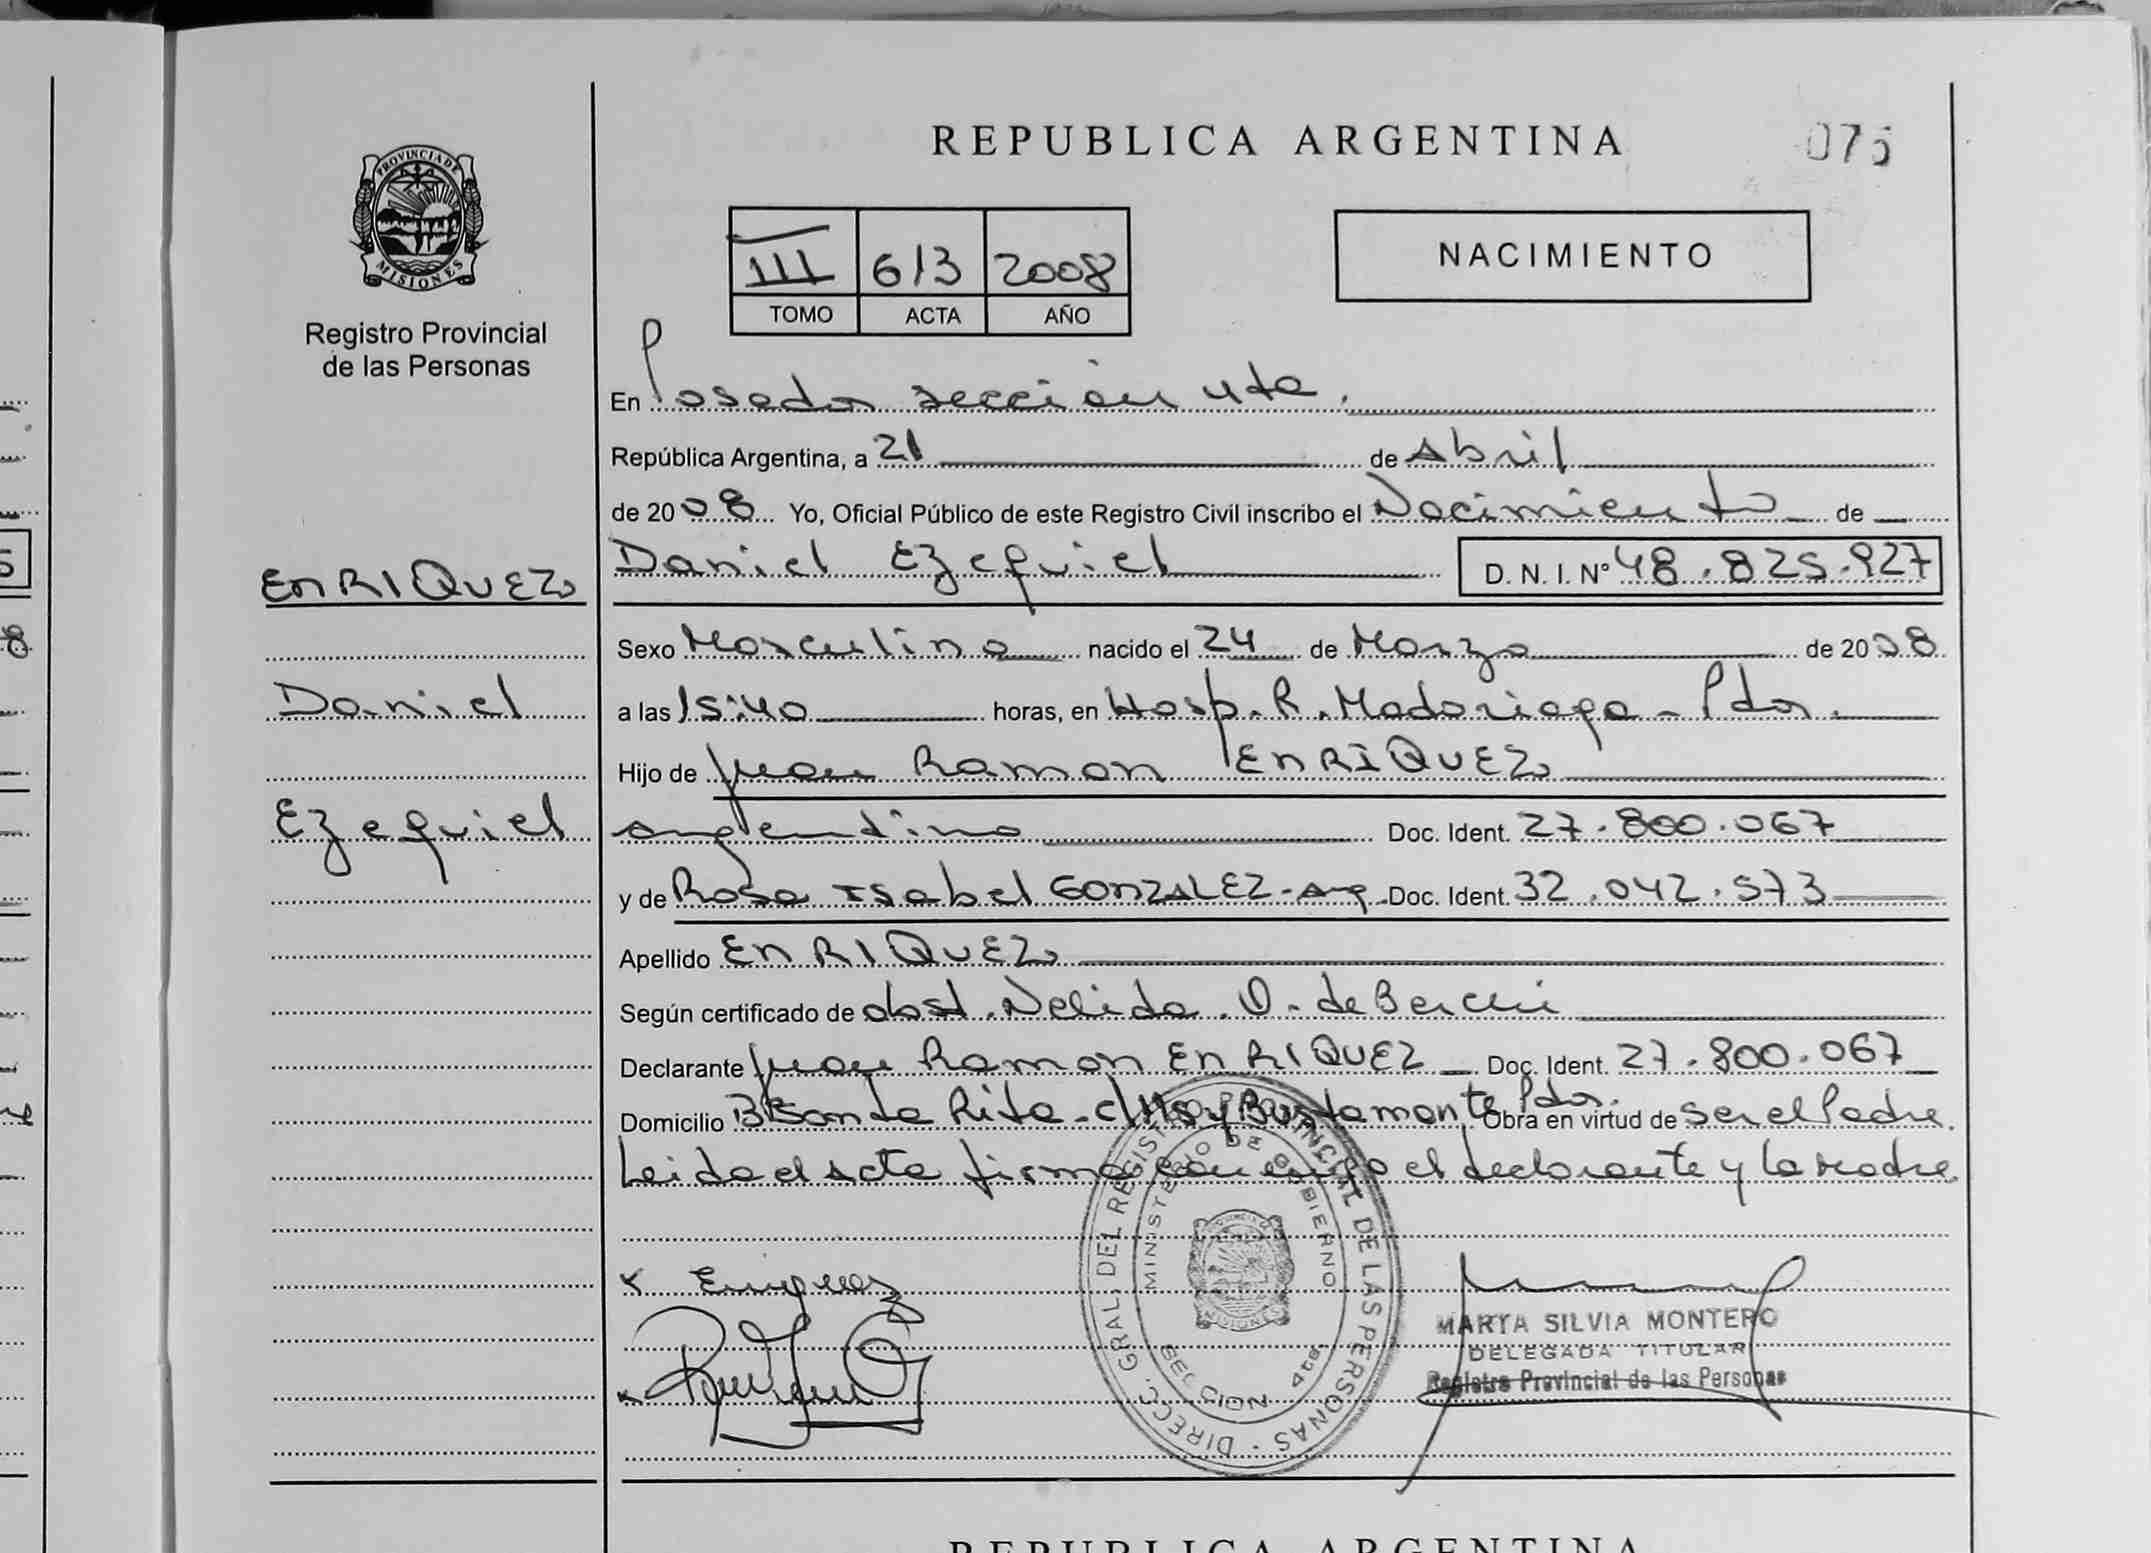 REPUBLICA ARGENTINA
075
PROVINCIA DE MISIONES
Registro Provincial
de las Personas
III 613 2008
TOMO ACTA AÑO
NACIMIENTO
En Posadas sección 4ta.
República Argentina, a 21 de Abril
de 2008 Yo, Oficial Público de este Registro Civil inscribo el Nacimiento de
ENRIQUEZ
Daniel Ezequiel D. N. I. N° 48.825.927
Sexo Masculino nacido el 24 de Marzo de 2008
Daniel
a las 15:40 horas, en Hosp. R. Madariaga - Pdas.
Hijo de Juan Ramon ENRIQUEZ
Ezequiel
argentino Doc. Ident. 27.800.067
y de Rosa Isabel GONZALEZ - arg. Doc. Ident. 32.042.573
Apellido ENRIQUEZ
Según certificado de obst. Nelida. O. de
Declarante Juan Ramon ENRIQUEZ Doc. Ident. 27.800.067
Domicilio B° Santa Rita - c/ y Bustamante Pdas. Obra en virtud de ser el Padre.
Leida el acta firma conmigo el declarante y la madre.
Enriquez
DIRECC. GRAL. DEL REGISTRO PROVINCIAL DE LAS PERSONAS
MINISTERIO DE GOBIERNO
SECCION 4ta.
MISIONES
MARTA SILVIA MONTERO
DELEGADA TITULAR
Registro Provincial de las Personas
REPUBLICA ARGENTINA